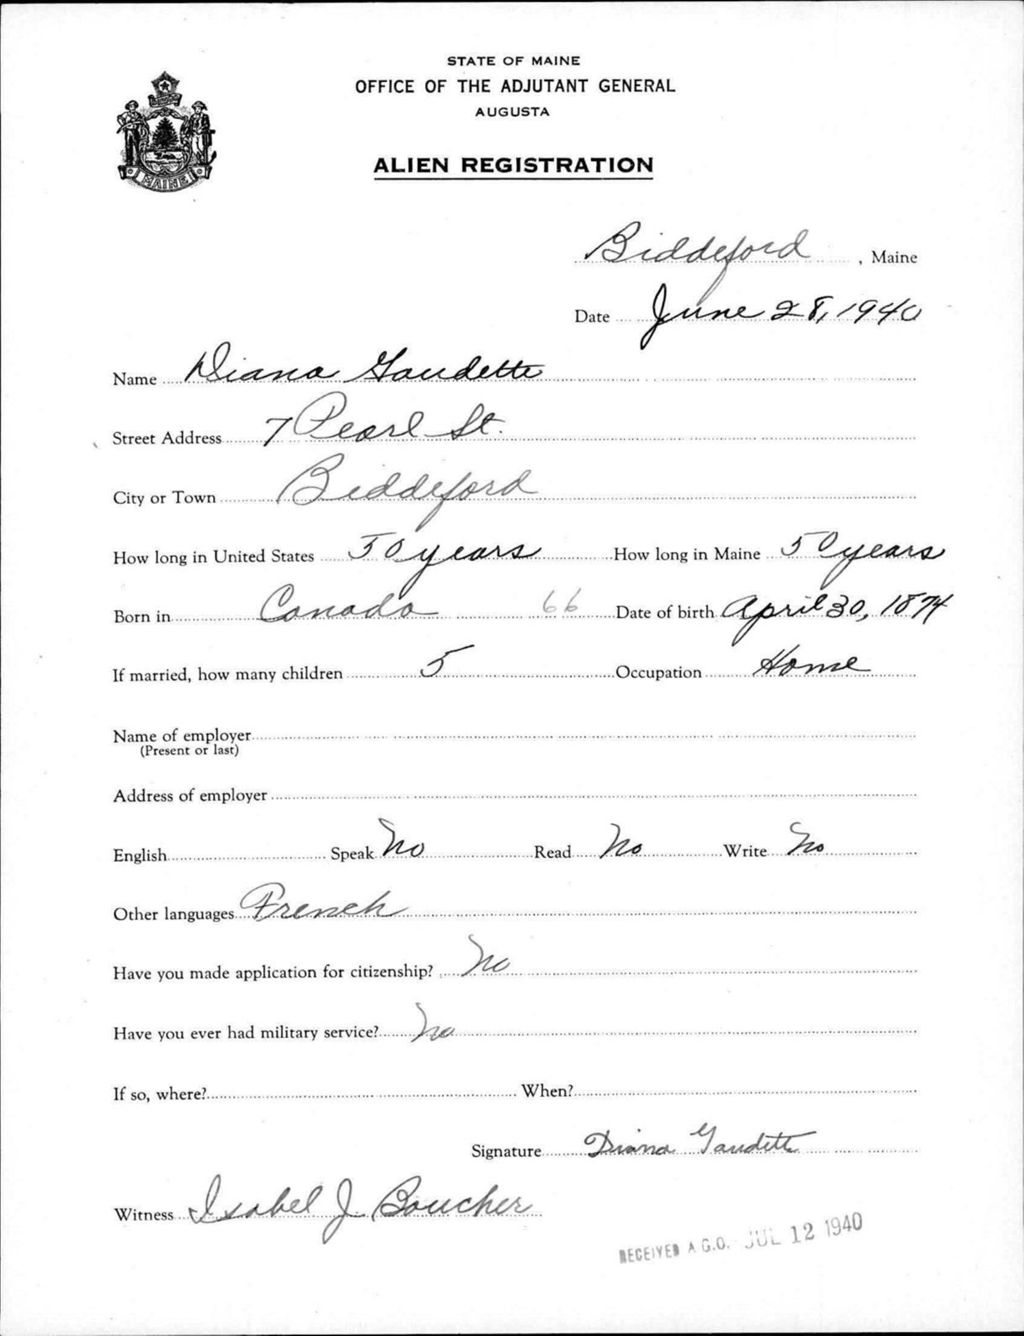 STATE OF MAINE
OFFICE OF THE ADJUTANT GENERAL
AUGUSTA
ALIEN REGISTRATION
MAINE
Biddeford, Maine
Date June 28, 1940
Name Diana Gaudette
Street Address 7 Pearl St.
City or Town Biddeford
How long in United States 50 years How long in Maine 50 years
Born in Canada 66 Date of birth April 30, 1874
If married, how many children 5 Occupation Home
Name of employer
(Present or last)
Address of employer
English Speak No Read No Write No
Other languages French
Have you made application for citizenship? No
Have you ever had military service? No
If so, where? When?
Signature Diana Gaudette
Witness Isabel J. Boucher
RECEIVED A.G.O. JUL 12 1940